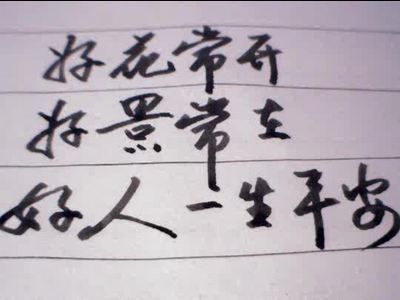 好花常开
好景常在
好人一生平安